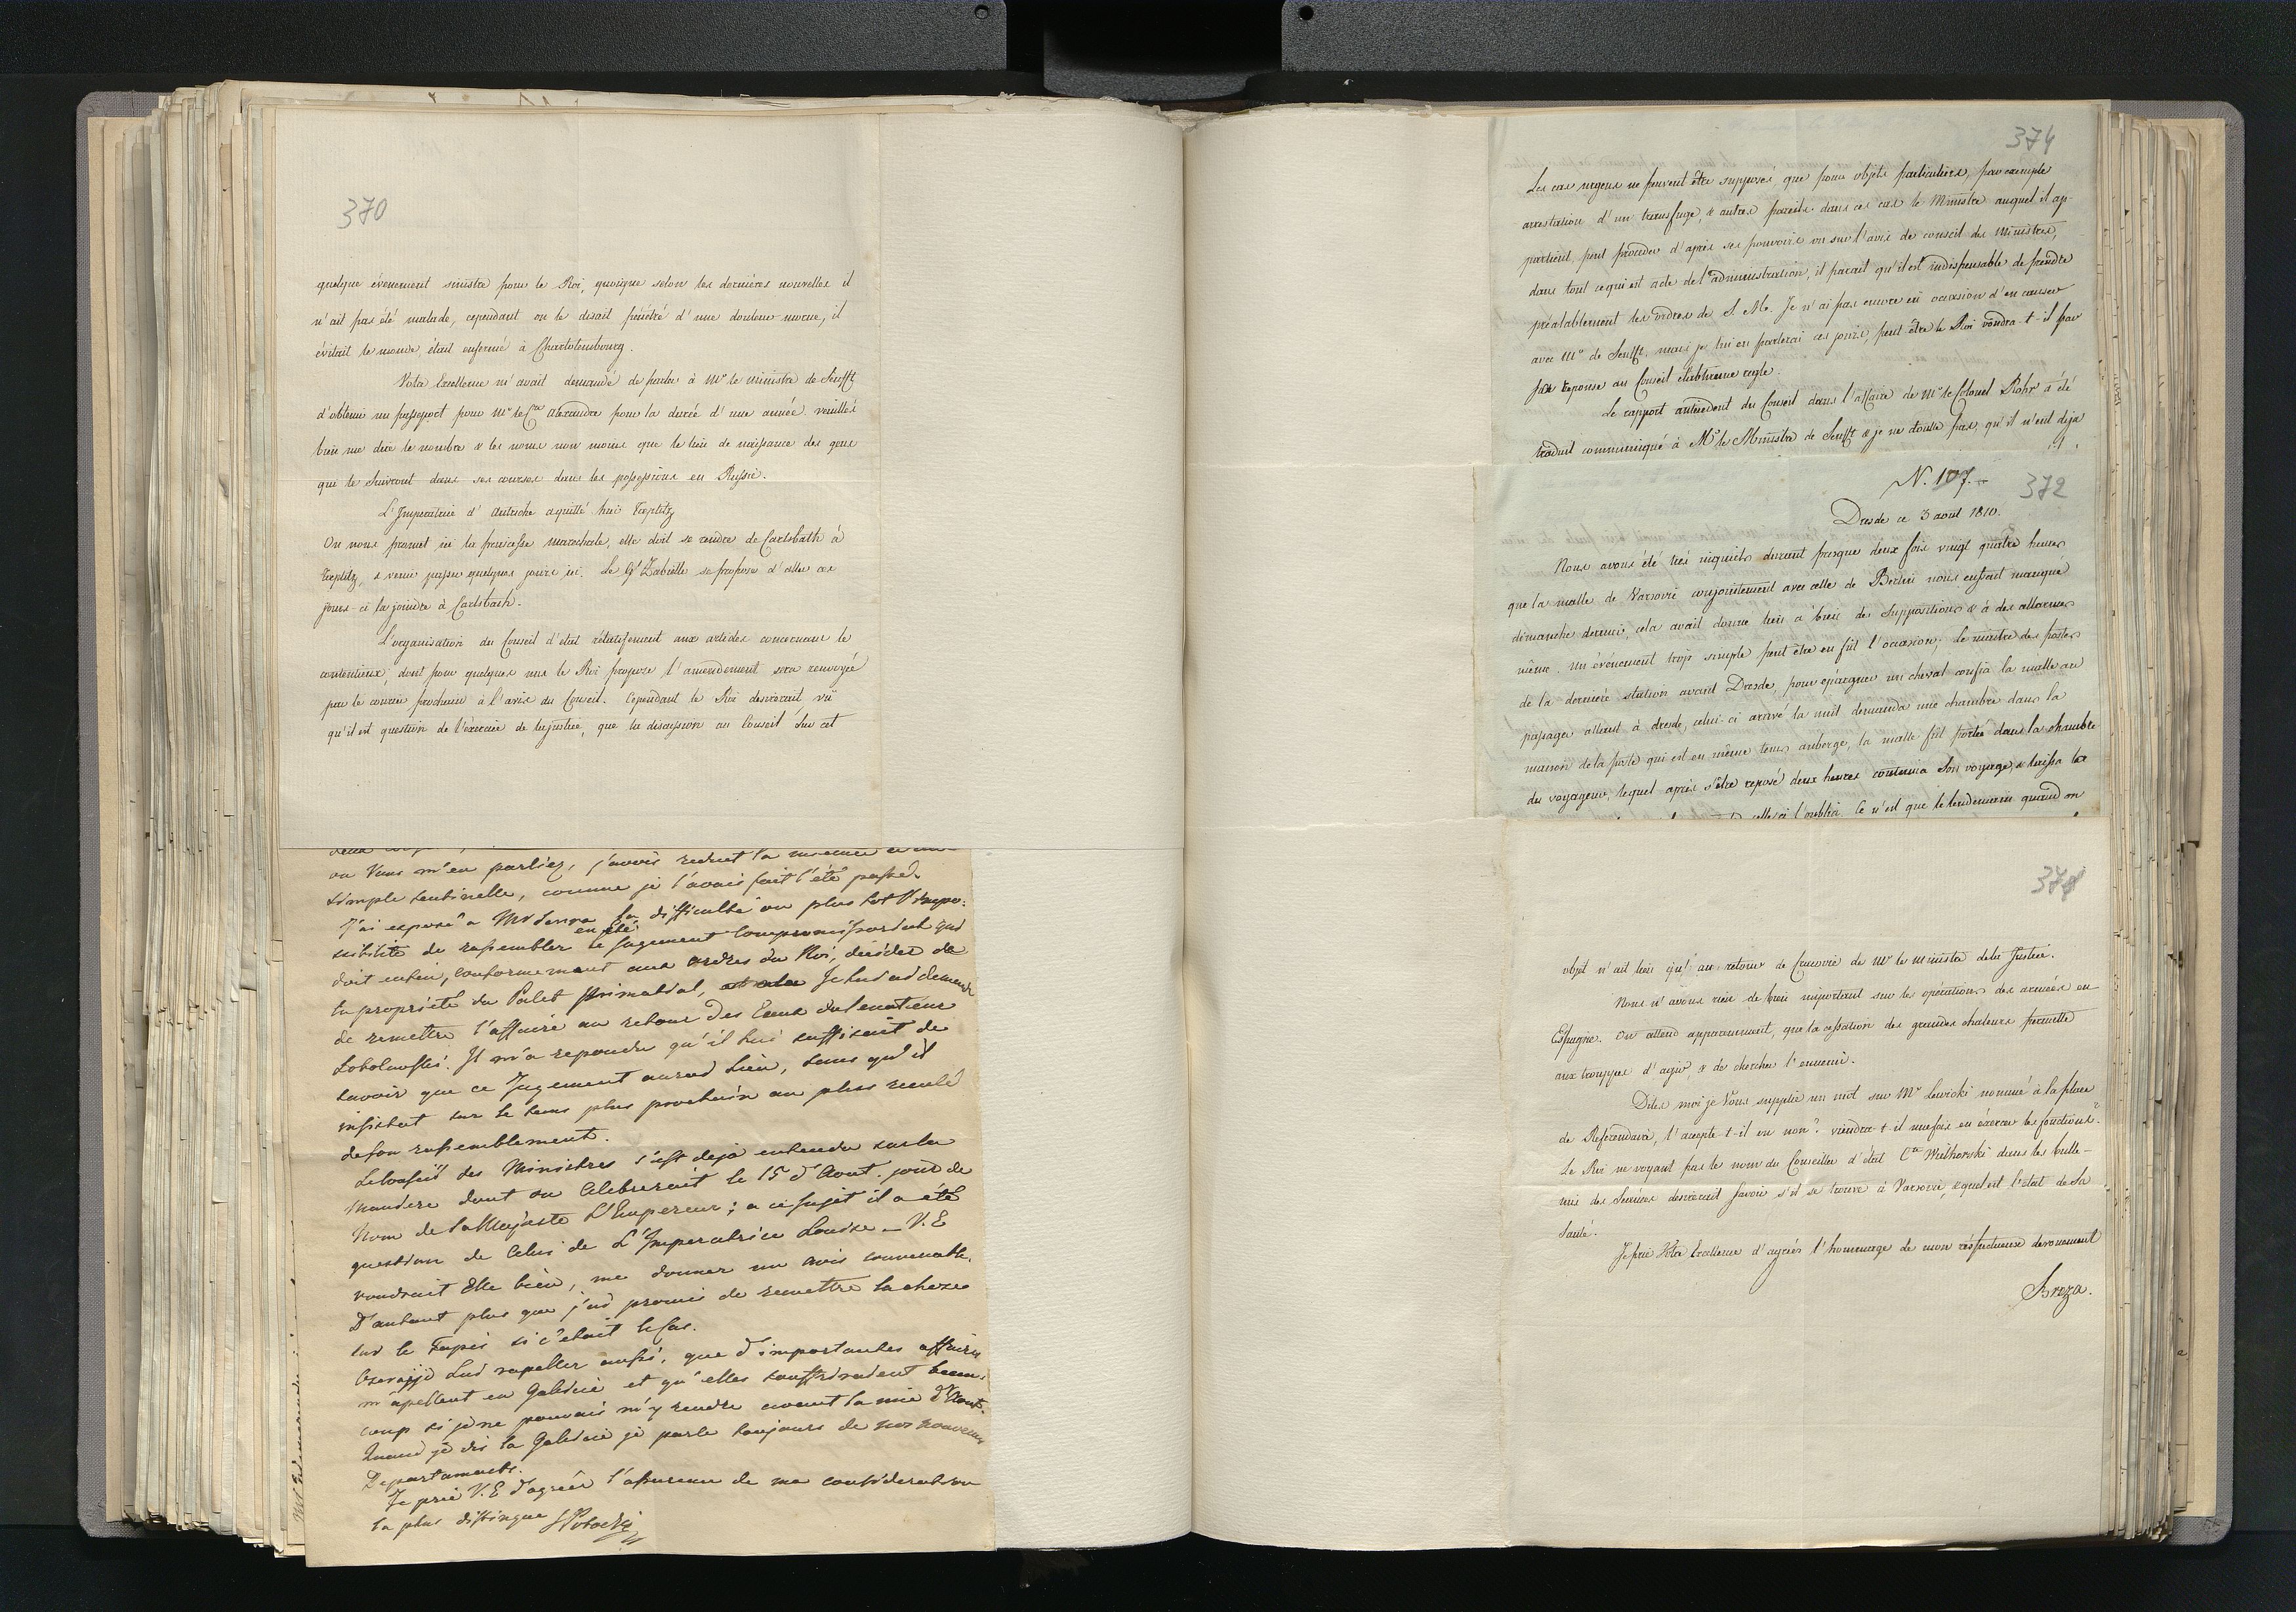 370
quelque évenement sinistre pour le Roi, quoique selon les dernières nouvelles il
n'ait pas été malade, cependant on le disait pénétré d'une douleur morne, il
évitait le monde, était enfermé à Charlotembourg.
Votre Excellence m'avait demandé de parler à Mr le ministre de Senfft
d'obtenir un passeport pour Mr le Cte Alexandre pour la durée d'une année. veuillés
bien me dire le nombre & les noms non moins que le lieu de naissance des gens
qui le suivront dans ses courses dans les possessions en Russie.
L'Imperatrice d'Autriche a quitté hier Toeplitz
On nous promet ici la princesse marechale, elle doit se rendre de Carlsbath à
Toeplitz, & venir passer quelques jours ici. Le Gl Zabiello se propose d'aller ces
jours-ci la joindre à Carlsbath.
L'organisation du Conseil d'etat rélativement aux articles concernans le
contentieux, dont pour quelques uns le Roi propose l'amendement sera renvoyée
par le courier prochain à l'avis du Conseil. Cependant le Roi desirerait, vû
qu'il est question de l'exercice de la justice, que la discussion au Conseil sur cet
ou Vous m'en parliez, j'avois reduit la
simple sentinelle, comme je l'avais fait l'été passé.
J'ai exposé a Mr Serra la difficulté ou plus tot l'impo:
sibilité de rassembler en été le Jugement Compromissorial qui
doit enfin, conformement aux ordres du Roi, décider de
la propriété du Palet Primatial, Je lui ai demandé
de remettre l'affaire au retour des Eaux du Senateur
Sobolewski. Il m'a repondu qu'il lui suffisait de
savoir que ce Jugement auroit Lieu, sans qu'il
insistat sur le tems plus prochain ou plus reculé
de son rassemblement.
Le Conseil des Ministres s'est deja entendu sur la
maniere dont on Celebreroit le 15 d'Aout. jour de
Nom de Sa Majesté L'Empereur; a ce sujet il a été
question de Celui de L'Imperatrice Louise – V. E
voudrait Elle bien, me donner un avis convenable.
D'autant plus que j'ai promis de remettre la chose
sur le Tapis si c'etait le Cas.
Oserai je Lui rapeller aussi, que d'importantes affaires
m'apellent en Galicie et qu'elles souffriroient beau:
coup si je ne pouvais m'y rendre avant la mie d'Aout.
Quand je dis la Galicie je parle toujours de nos nouveaux
Departaments.
Je prie V. E d'agréer l'assurance de ma consideration
la plus distinguée SPotocki
374
Les cas urgens ne peuvent être supposés que pour objets particuliers, par exemple
arrestation d'un transfuge, & autres pareils. dans ces cas le Ministre auquel il ap-
partient, peut proceder d'après ses pouvoirs ou sur l'avis de conseil des Ministres,
dans tout ce qui est acte de l'administration, il parait qu'il est indispensable de prendre
préalablement les ordres de S. M. Je n'ai pas encore eû occasion d'en causer
avec Mr de Senfft, mais je lui en parlerai ces jours, peut être le Roi voudra-t-il par
sa reponse au Conseil établir une regle.
Le rapport antécédent du Conseil dans l'affaire de Mr le Colonel Rohr a été
traduit communiqué à Mr le Ministre de Senfft & je ne doute pas, qu'il n'eut deja
N. 107.
372
Dresde ce 3 aout 1810.
Nous avons été très inquiets durant presque deux fois vingt quatre heures
que la malle de Varsovie conjointement avec celle de Berlin nous eussent manqué
dimanche dernier, cela avait donné lieu à bien des suppositions & à des allarmes
même. Un événement trop simple peut être en fût l'occasion; le maitre des postes
de la dernière station avant Dresde, pour épargner un cheval confia la malle au
passager allant à dresde, celui-ci arrivé la nuit demanda une chambre dans la
maison de la poste qui est en même tems auberge, la malle fût portée dans la chambre
du voyageur, lequel après s'être reposé deux heures continua son voyage, & laissa la
l'oublia. Ce n'est que le lendemain quand on
371
objet n'ait lieu qu'au retour de Cracovie de Mr le ministre de la Justice.
Nous n'avons rien de bien important sur les opérations des armées en
Espagne. On attend apparemment, que la cessation des grandes chaleurs permette
aux trouppes d'agir, & de chercher l'ennemi.
Dites moi je Vous supplie un mot sur Mr Lewicki nommé à la place
de Referendaire, l'accepte-t-il ou non? viendra-t-il une fois en éxercer les fonctions?
Le Roi ne voyant pas le nom du Conseiller d'état Cte Wielhorski dans les bulle-
tins des Seances desirerait savoir s'il se trouve à Varsovie, & quel est l'état de sa
santé.
Je prie Votre Excellence d'agréer l'hommage de mon réspectueux devouement
Breza.